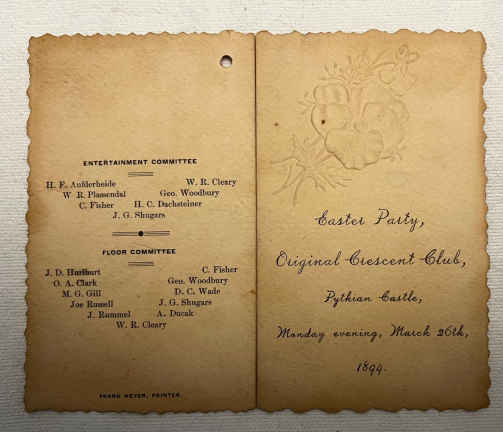 ENTERTAINMENT COMMITTEE
H. F. Aufderheide W. R. Cleary
W. R. Plassendal Geo. Woodbury
C. Fisher H. C. Dachsteiner
J. G. Shugars
FLOOR COMMITTEE
J. D. Hurlburt C. Fisher
O. A. Clark Geo. Woodbury
M. G. Gill D. C. Wade
Joe Russell J. G. Shugars
J. Rummel A. Ducak
W. R. Cleary
FRANK MEYER, PRINTER.
Easter Party,
Original Crescent Club,
Pythian Castle,
Monday evening, March 26th,
1899.